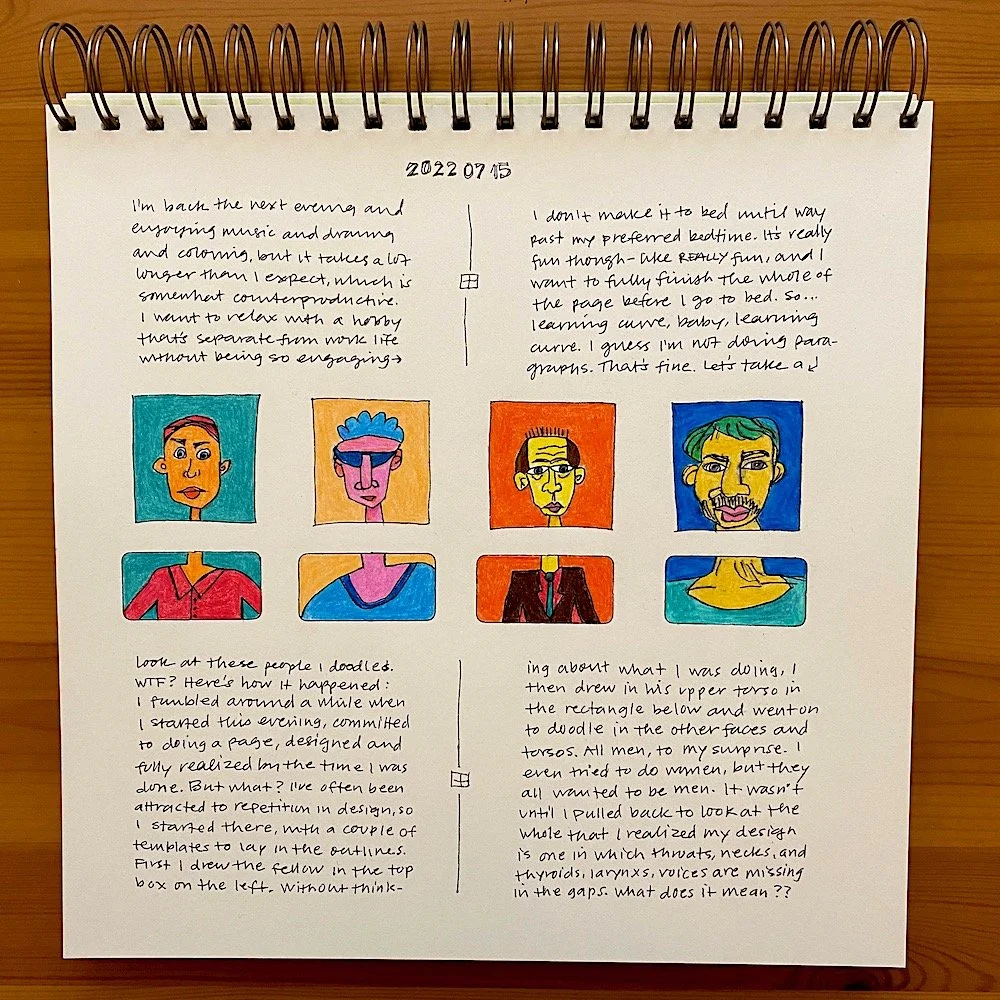 2022 07 15
I'm back the next evening and
enjoying music and drawing
and coloring, but it takes a lot
longer than I expect, which is
somewhat counterproductive.
I want to relax with a hobby
that's separate from work life
without being so engaging→
I don't make it to bed until way
past my preferred bedtime. It's really
fun though - like REALLY fun, and I
want to fully finish the whole of
the page before I go to bed. So...
learning curve, baby, learning
curve. I guess I'm not doing para-
graphs. That's fine. Let's take a ↓
look at these people I doodled.
WTF? Here's how it happened:
I fumbled around a while when
I started this evening, committed
to doing a page, designed and
fully realized by the time I was
done. But what? I've often been
attracted to repetition in design, so
I started there, with a couple of
templates to lay in the outlines.
First I drew the fellow in the top
box on the left. Without think-
ing about what I was doing, I
then drew in his upper torso in
the rectangle below and went on
to doodle in the other faces and
torsos. All men, to my surprise. I
even tried to do women, but they
all wanted to be men. It wasn't
until I pulled back to look at the
whole that I realized my design
is one in which throats, necks, and
thyroids, larynxs, voices are missing
in the gaps. What does it mean??